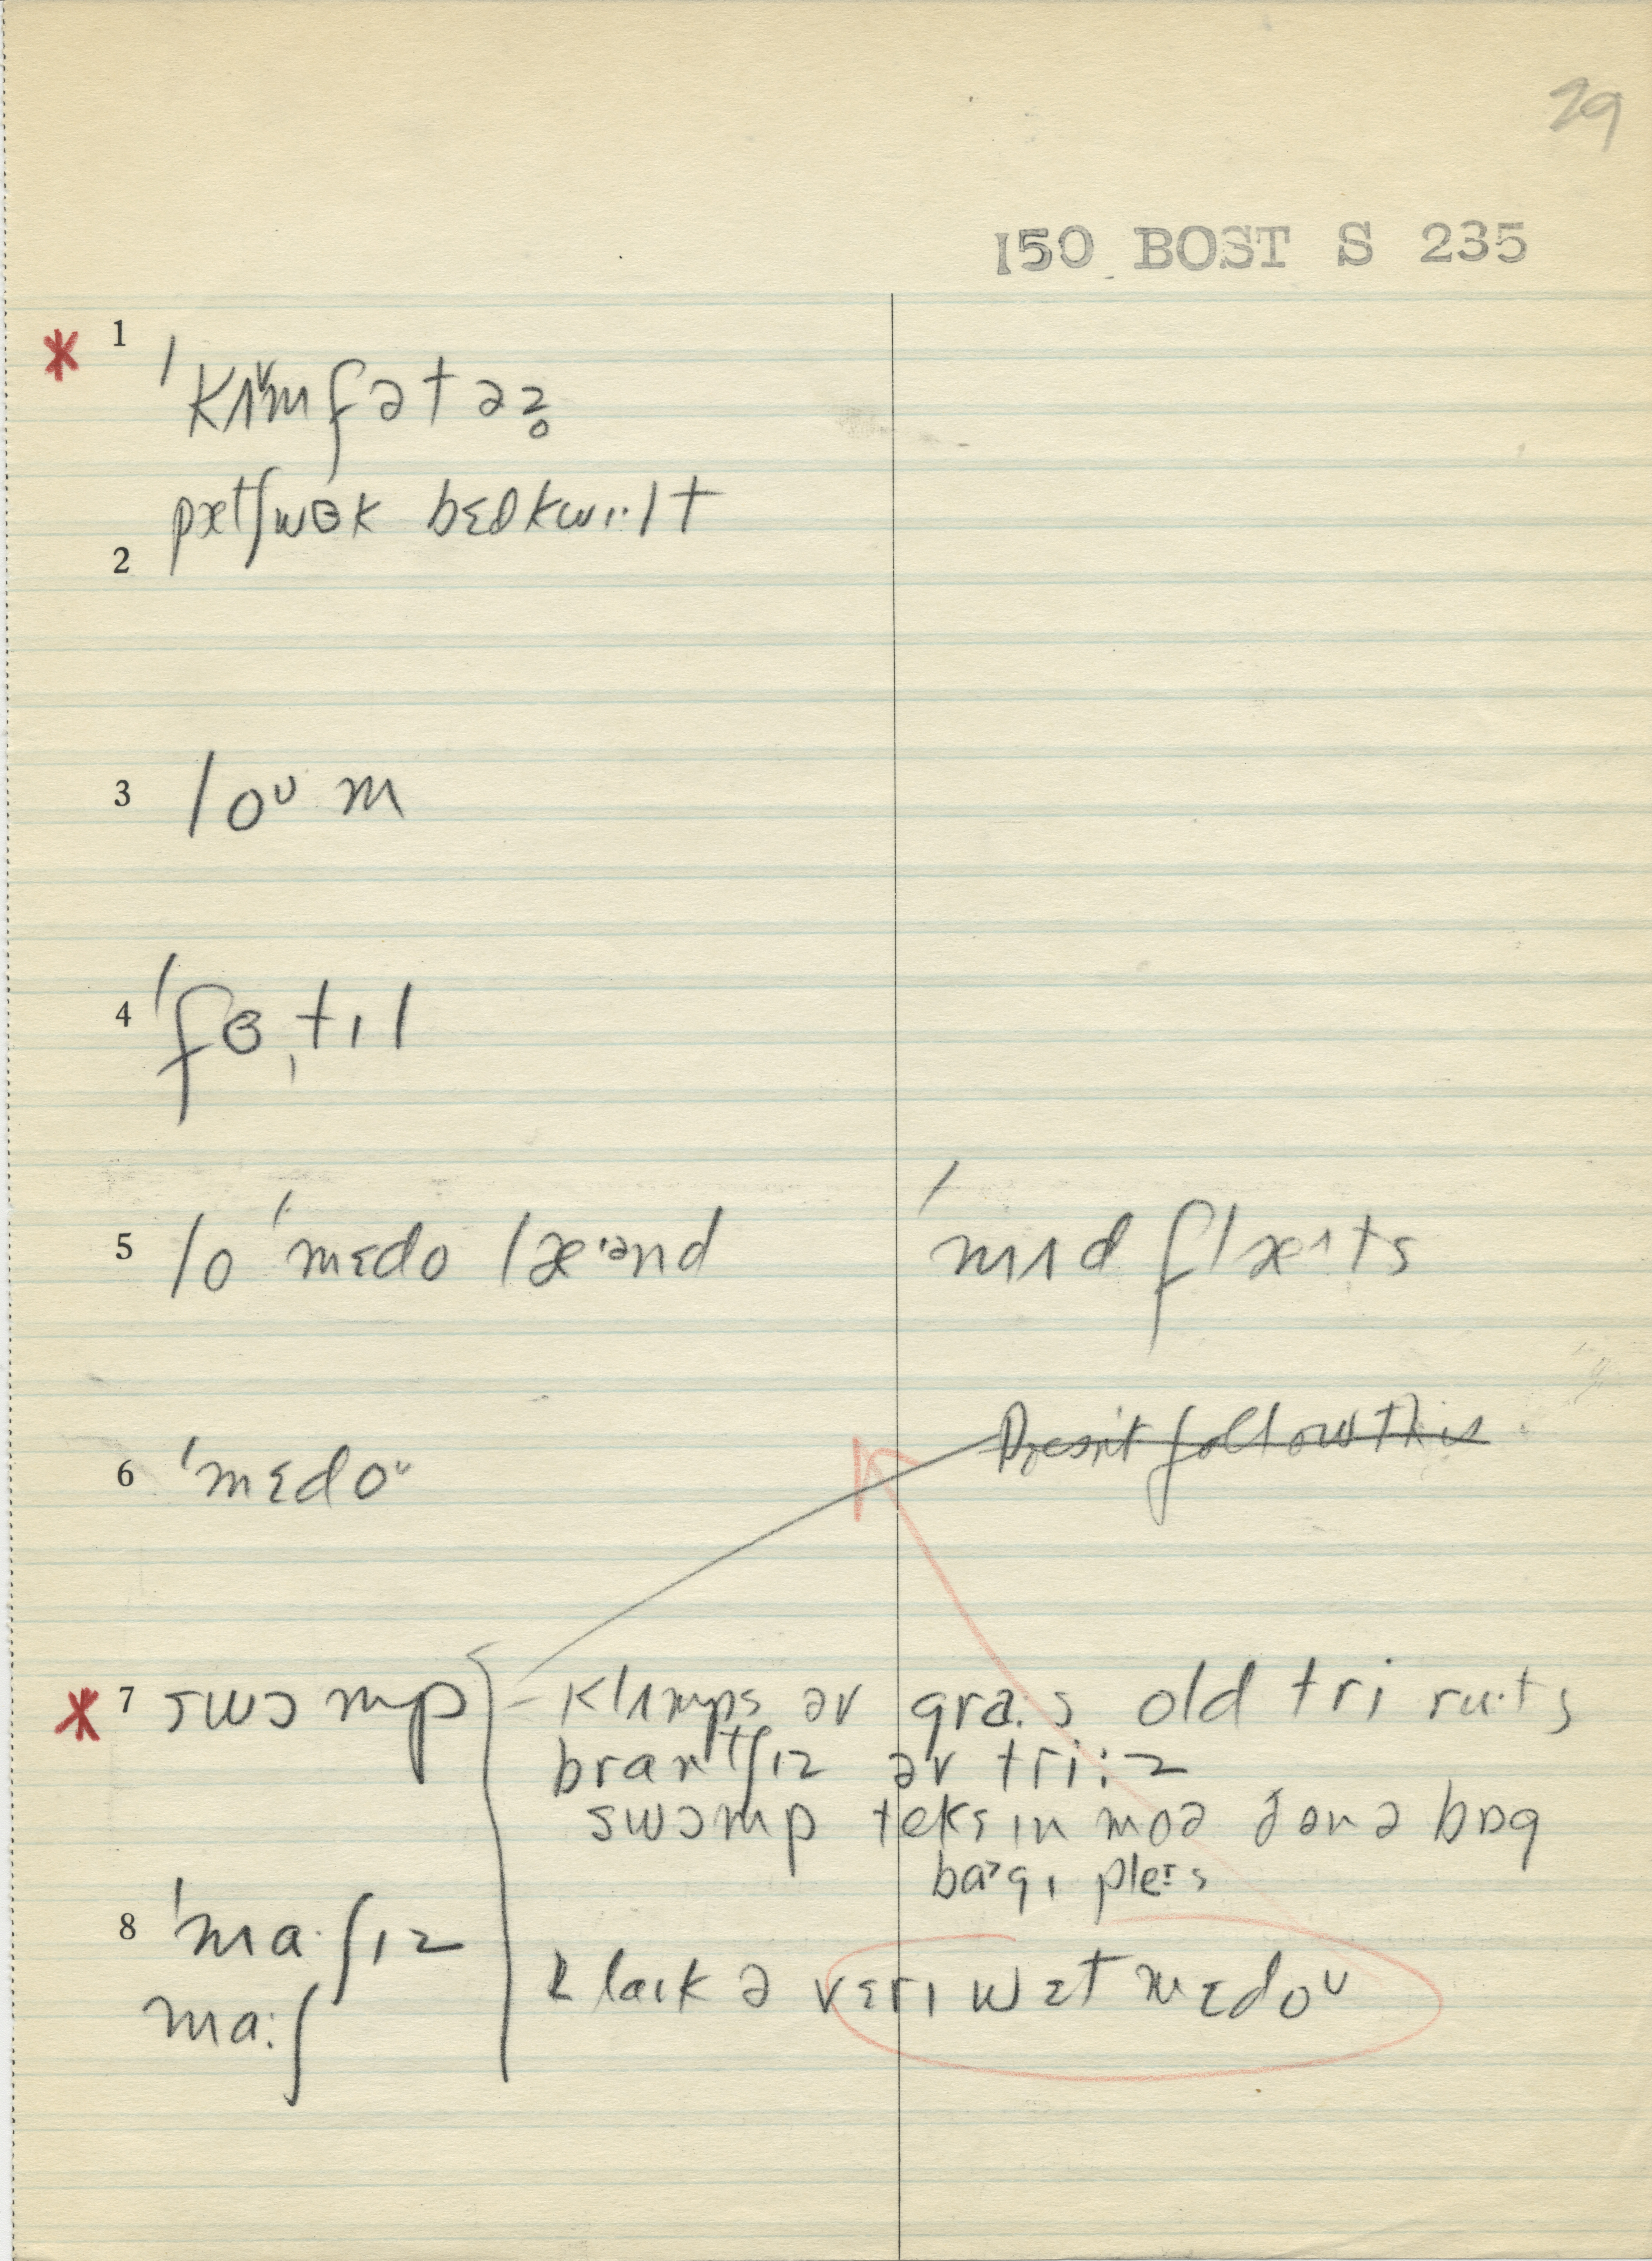 29
150 BOST S 235
* 1 ˈkʌ̌mfətəz̥
pætʃwɵk bɛdkwɪ·lt
2
3 loᵘm
4 ˈfɵ̩tɪl
5 lo ˈmɛdo læ·ənd ˈmʌd flæ^ts
6 ˈmɛdoᵘ Doesn't follow this
* 7 swɔmp - klʌmps əv gra·s old tri ru·ts
brantʃɪz əv tri:z
swɔmp teks ɪn moə ðən ə bɒg
ba˃gɪ pleɪs
8 ˈma·ʃɪz
& laɪk ə vɛrɪ wɛt mɛdoᵘ
ma:ʃ